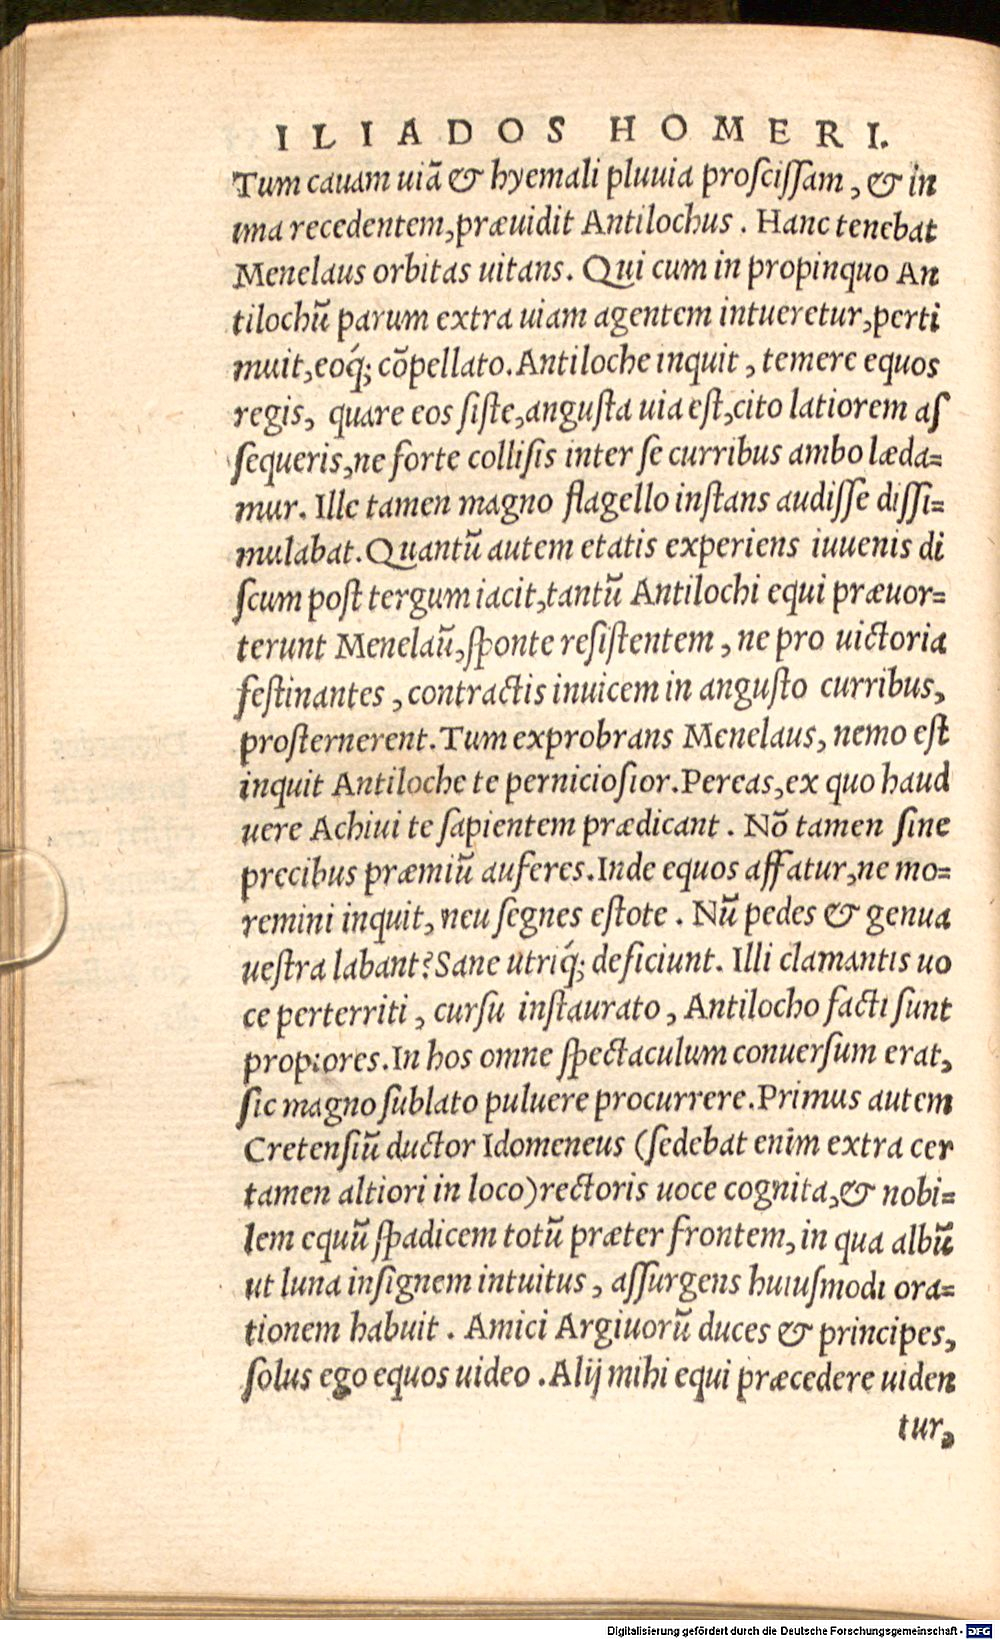 ILIADOS HOMERI.
Tum cauam uiã & hyemali pluuia prosciſſam, & in
ima recedentem, præuidit Antilochus. Hanc tenebat
Menelaus orbitas uitans. Qui cum in propinquo An
tilochũ parum extra uiam agentem intueretur, perti
muit, eoq́; cõpellato. Antiloche inquit, temere equos
regis, quare eos ſiſte, anguſta uia eſt, cito latiorem aſ
ſequeris, ne forte colliſis inter ſe curribus ambo læda=
mur. Ille tamen magno flagello inſtans audiſſe diſſi=
mulabat. Quantũ autem etatis experiens iuuenis di
ſcum poſt tergum iacit, tantũ Antilochi equi præuor=
terunt Menelaũ, ſponte reſiſtentem, ne pro uictoria
feſtinantes, contractis inuicem in anguſto curribus,
proſternerent. Tum exprobrans Menelaus, nemo eſt
inquit Antiloche te pernicioſior. Pereas, ex quo haud
uere Achiui te ſapientem prædicant. Nõ tamen ſine
precibus præmiũ auferes. Inde equos affatur, ne mo=
remini inquit, neu ſegnes eſtote. Nũ pedes & genua
ueſtra labant? Sane utriq́; deficiunt. Illi clamantis uo
ce perterriti, curſu inſtaurato, Antilocho facti ſunt
propiores. In hos omne ſpectaculum conuerſum erat,
ſic magno ſublato puluere procurrere. Primus autem
Cretenſiũ ductor Idomeneus (ſedebat enim extra cer
tamen altiori in loco) rectoris uoce cognita, & nobi=
lem equũ ſpadicem totũ præter frontem, in qua albũ
ut luna inſignem intuitus, aſſurgens huiuſmodi ora=
tionem habuit. Amici Argiuorũ duces & principes,
ſolus ego equos uideo. Alij mihi equi præcedere uiden
tur,
Digitalisierung gefördert durch die Deutsche Forschungsgemeinschaft - DFG